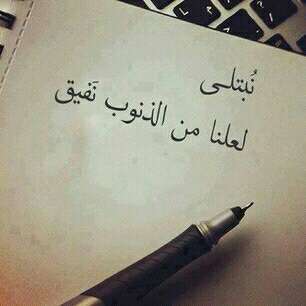 نُبتلى
لعلنا من الذنوب نَفيق